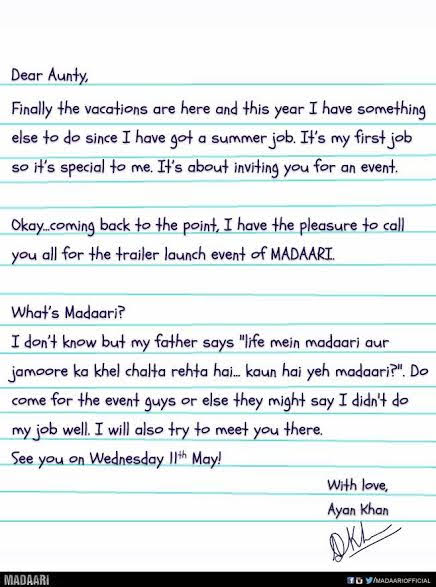 Dear Aunty,
Finally the vacations are here and this year I have something
else to do since I have got a summer job. It's my first job
so it's special to me. It's about inviting you for an event.
Okay...coming back to the point, I have the pleasure to call
you all for the trailer launch event of MADAARI.
What's Madaari?
I don't know but my father says "life mein madaari aur
jamoore ka khel chalta rehta hai... kaun hai yeh madaari?". Do
come for the event guys or else they might say I didn't do
my job well. I will also try to meet you there.
See you on Wednesday 11th May!
With love,
Ayan Khan
MADAARI
/MADAARIOFFICIAL